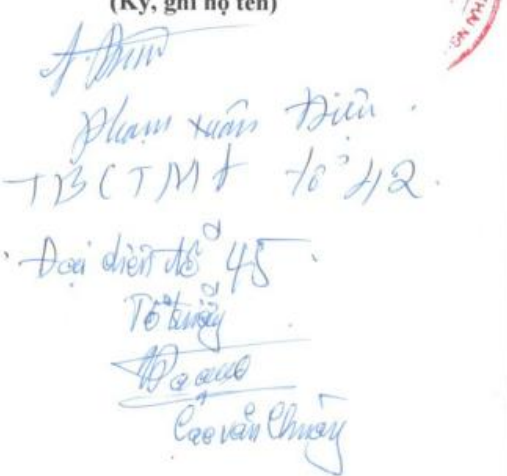 (Ký, ghi họ tên)
Phạm Xuân Diện.
TBCTMT tổ 42.
Đại diện tổ 45.
Tổ trưởng
Cao Văn